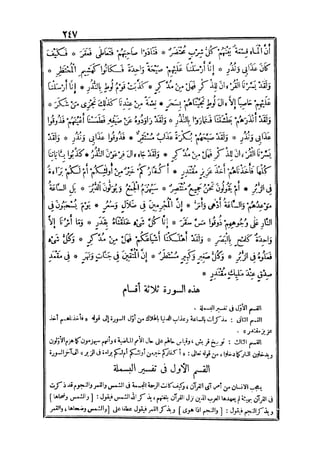 ٢٤٧
أَنَّ الْمَاءَ قِسْمَةٌ بَيْنَهُمْ كُلُّ شِرْبٍ مُحْتَضَرٌ * فَنَادَوْا صَاحِبَهُمْ فَتَعَاطَى فَعَقَرَ * فَكَيْفَ
كَانَ عَذَابِي وَنُذُرِ * إِنَّا أَرْسَلْنَا عَلَيْهِمْ صَيْحَةً وَاحِدَةً فَكَانُوا كَهَشِيمِ الْمُحْتَظِرِ *
وَلَقَدْ يَسَّرْنَا الْقُرْءَانَ لِلذِّكْرِ فَهَلْ مِنْ مُدَّكِرٍ * كَذَّبَتْ قَوْمُ لُوطٍ بِالنُّذُرِ * إِنَّا أَرْسَلْنَا
عَلَيْهِمْ حَاصِبًا إِلَّا ءَالَ لُوطٍ نَجَّيْنَاهُمْ بِسَحَرٍ * نِعْمَةً مِنْ عِنْدِنَا كَذَلِكَ نَجْزِي مَنْ شَكَرَ *
وَلَقَدْ أَنْذَرَهُمْ بَطْشَتَنَا فَتَمَارَوْا بِالنُّذُرِ * وَلَقَدْ رَاوَدُوهُ عَنْ ضَيْفِهِ فَطَمَسْنَا أَعْيُنَهُمْ فَذُوقُوا
عَذَابِي وَنُذُرِ * وَلَقَدْ صَبَّحَهُمْ بُكْرَةً عَذَابٌ مُسْتَقِرٌّ * فَذُوقُوا عَذَابِي وَنُذُرِ * وَلَقَدْ
يَسَّرْنَا الْقُرْءَانَ لِلذِّكْرِ فَهَلْ مِنْ مُدَّكِرٍ * وَلَقَدْ جَاءَ ءَالَ فِرْعَوْنَ النُّذُرُ * كَذَّبُوا بِآيَاتِنَا
كُلِّهَا فَأَخَذْنَاهُمْ أَخْذَ عَزِيزٍ مُقْتَدِرٍ * أَكُفَّارُكُمْ خَيْرٌ مِنْ أُولَئِكُمْ أَمْ لَكُمْ بَرَاءَةٌ
فِي الزُّبُرِ * أَمْ يَقُولُونَ نَحْنُ جَمِيعٌ مُنْتَصِرٌ * سَيُهْزَمُ الْجَمْعُ وَيُوَلُّونَ الدُّبُرَ * بَلِ السَّاعَةُ
مَوْعِدُهُمْ وَالسَّاعَةُ أَدْهَى وَأَمَرُّ * إِنَّ الْمُجْرِمِينَ فِي ضَلَالٍ وَسُعُرٍ * يَوْمَ يُسْحَبُونَ فِي
النَّارِ عَلَى وُجُوهِهِمْ ذُوقُوا مَسَّ سَقَرَ * إِنَّا كُلَّ شَيْءٍ خَلَقْنَاهُ بِقَدَرٍ * وَمَا أَمْرُنَا إِلَّا
وَاحِدَةٌ كَلَمْحٍ بِالْبَصَرِ * وَلَقَدْ أَهْلَكْنَا أَشْيَاعَكُمْ فَهَلْ مِنْ مُدَّكِرٍ * وَكُلُّ شَيْءٍ
فَعَلُوهُ فِي الزُّبُرِ * وَكُلُّ صَغِيرٍ وَكَبِيرٍ مُسْتَطَرٌ * إِنَّ الْمُتَّقِينَ فِي جَنَّاتٍ وَنَهَرٍ * فِي مَقْعَدِ
صِدْقٍ عِنْدَ مَلِيكٍ مُقْتَدِرٍ *
هذه السورة ثلاثة أقسام
القسم الأول : في تفسير البسملة .
القسم الثاني : مذكرات بالساعة وعذاب الدنيا بالهلاك من أول السورة إلى قوله « فأخذناهم أخذ
عزيز مقتدر » .
القسم الثالث : توبيخ قريش ، وقياس حالهم على حال الأمم الماضية ، وأنهم سيهزمون كما هزم الأولون
ويدخلون النار كما دخلوا ، من قوله تعالى : « أكفاركم خير من أولئكم أم لكم براءة في الزبر » إلى آخر السورة
القسم الأول في تفسير البسملة
يعجب الإنسان من أمر آي القرآن ، وكيف كانت الرحمة المجسمة في الشمس والقمر والنجوم قد ذكرت
في القرآن بهيئة لم يعهدها العرب الذين نزل القرآن بلغتهم ، يذكر الله الشمس فيقول : [ والشمس وضحاها ]
ويذكر النجم فيقول : [ والنجم إذا هوى ] ويذكر القمر فيقول عطفا على [ والشمس وضحاها ، والقمر